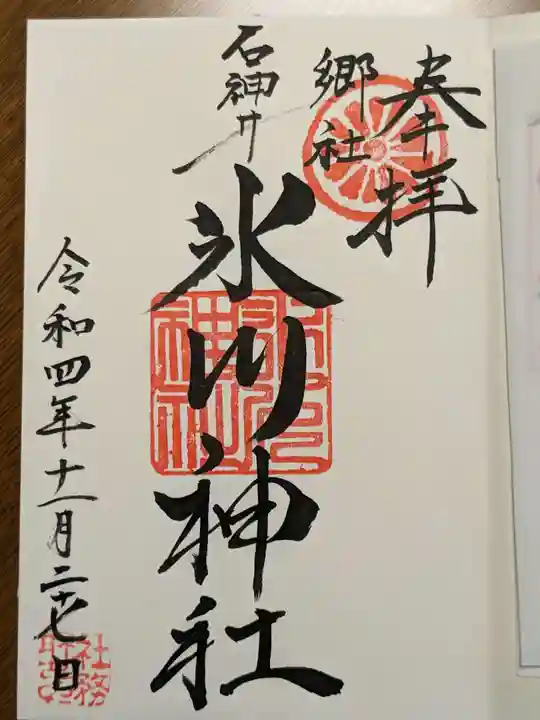 奉拝
郷社
石神井
氷川神社
令和四年十一月二十七日
氷川
神社
社務